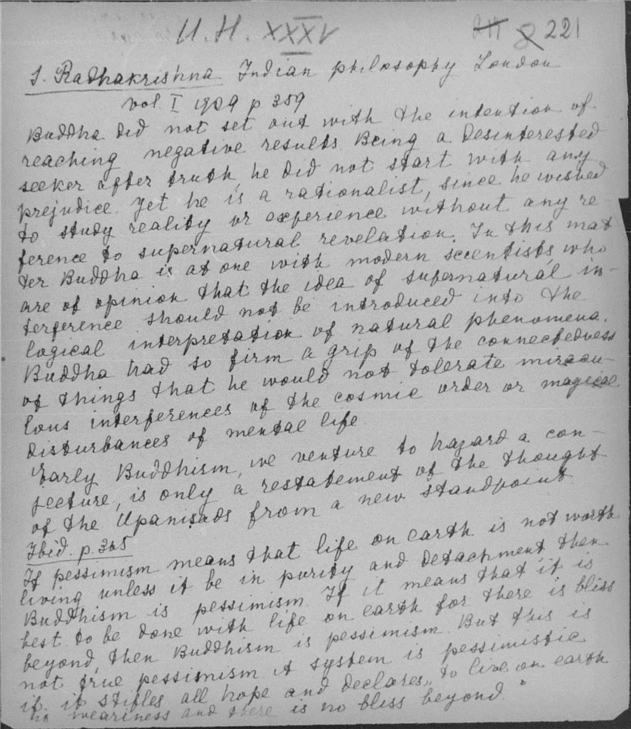 U. H. XXXV 221
S. Radhakrishna Indian philosophy London
vol I 1909 p 359
Buddha did not set out with the intention of
reaching negative results Being a desinterested
seeker after truth he did not start with any
prejudice. Yet he is a rationalist, since he wished
to study reality or experience without any re-
ference to supernatural revelation. In this mat
ter Buddha is at one with modern scientists who
are of opinion that the idea of supernatural in-
terference should not be introduced into the
logical interpretation of natural phenomena.
Buddha had so firm a grip of the connectedness
of things that he would not tolerate miracu-
lous interferences of the cosmic order or magical
disturbances of mental life.
Early Buddhism, we venture to hazard a con-
jecture, is only a restatement of the thought
of the Upanisads from a new standpoint
Ibid. p. 365
If pessimism means that life on earth is not worth
living unless it be in purity and detachment then
Buddhism is pessimism. If it means that it is
best to be done with life on earth for there is bliss
beyond, then Buddhism is pessimism. But this is
not true pessimism A system is pessimistic
if it stifles all hope and declares "to live on earth
is weariness and there is no bliss beyond."